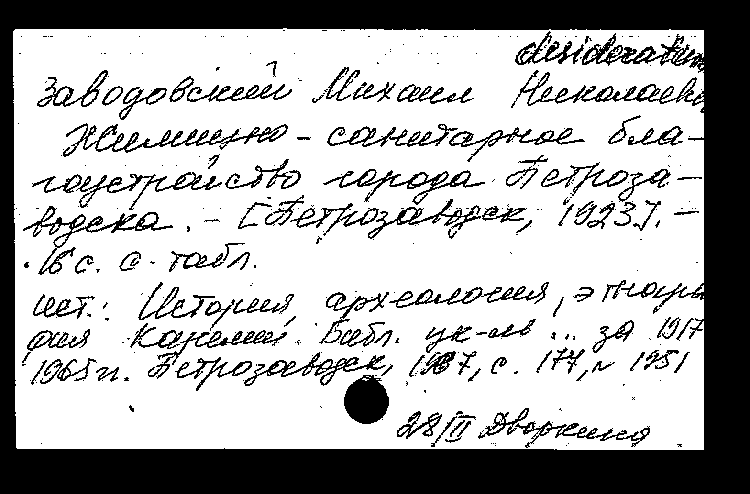 desideratum
Заводовский Михаил Николаеви
Жилищно-санитарное бла-
гоустройство города Петроза-
водска. - [Петрозаводск, 1923]. -
16 с. с табл.
ист.: История, археология, этногра
фия Карелии. Библ. ук-ль ... за 1917
1965 гг. Петрозаводск, 1967, с. 177, № 1251
28/II Дворкина